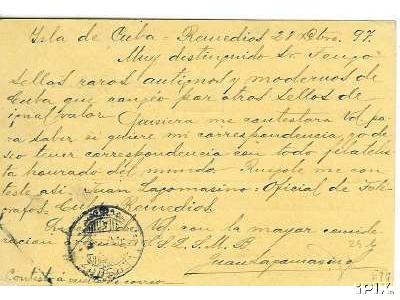 Isla de Cuba - Remedios 28 Dbre. 97.
Muy distinguido Sr. Tengo
sellos raros antiguos y modernos de
Cuba que canjeo por otros sellos de
igual valor Quisiera me contestara Vd pa
ra saber si quiere mi correspondencia, yo de
seo tener correspondencia con todo filatelis
ta honrado del mundo Ruegole me con
teste asi: Juan Lagomasino: Oficial de Tele
grafos - Cuba Remedios.
Vd. con la mayor consideracion
S. S. Q. S. M. B.
Juan Lagomasino
Contesta á correo
IPIX